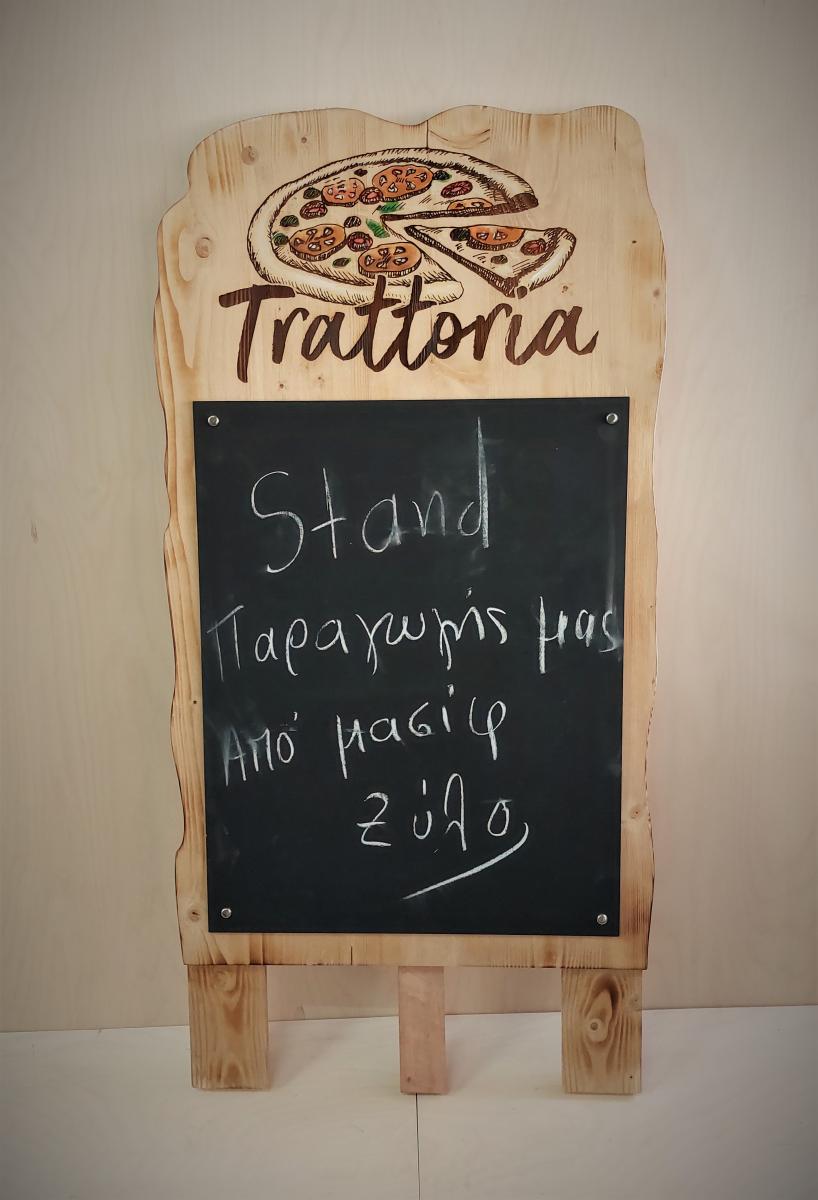 Trattoria
Stand
Παραγωγής μας
Από μασίφ
ξύλο